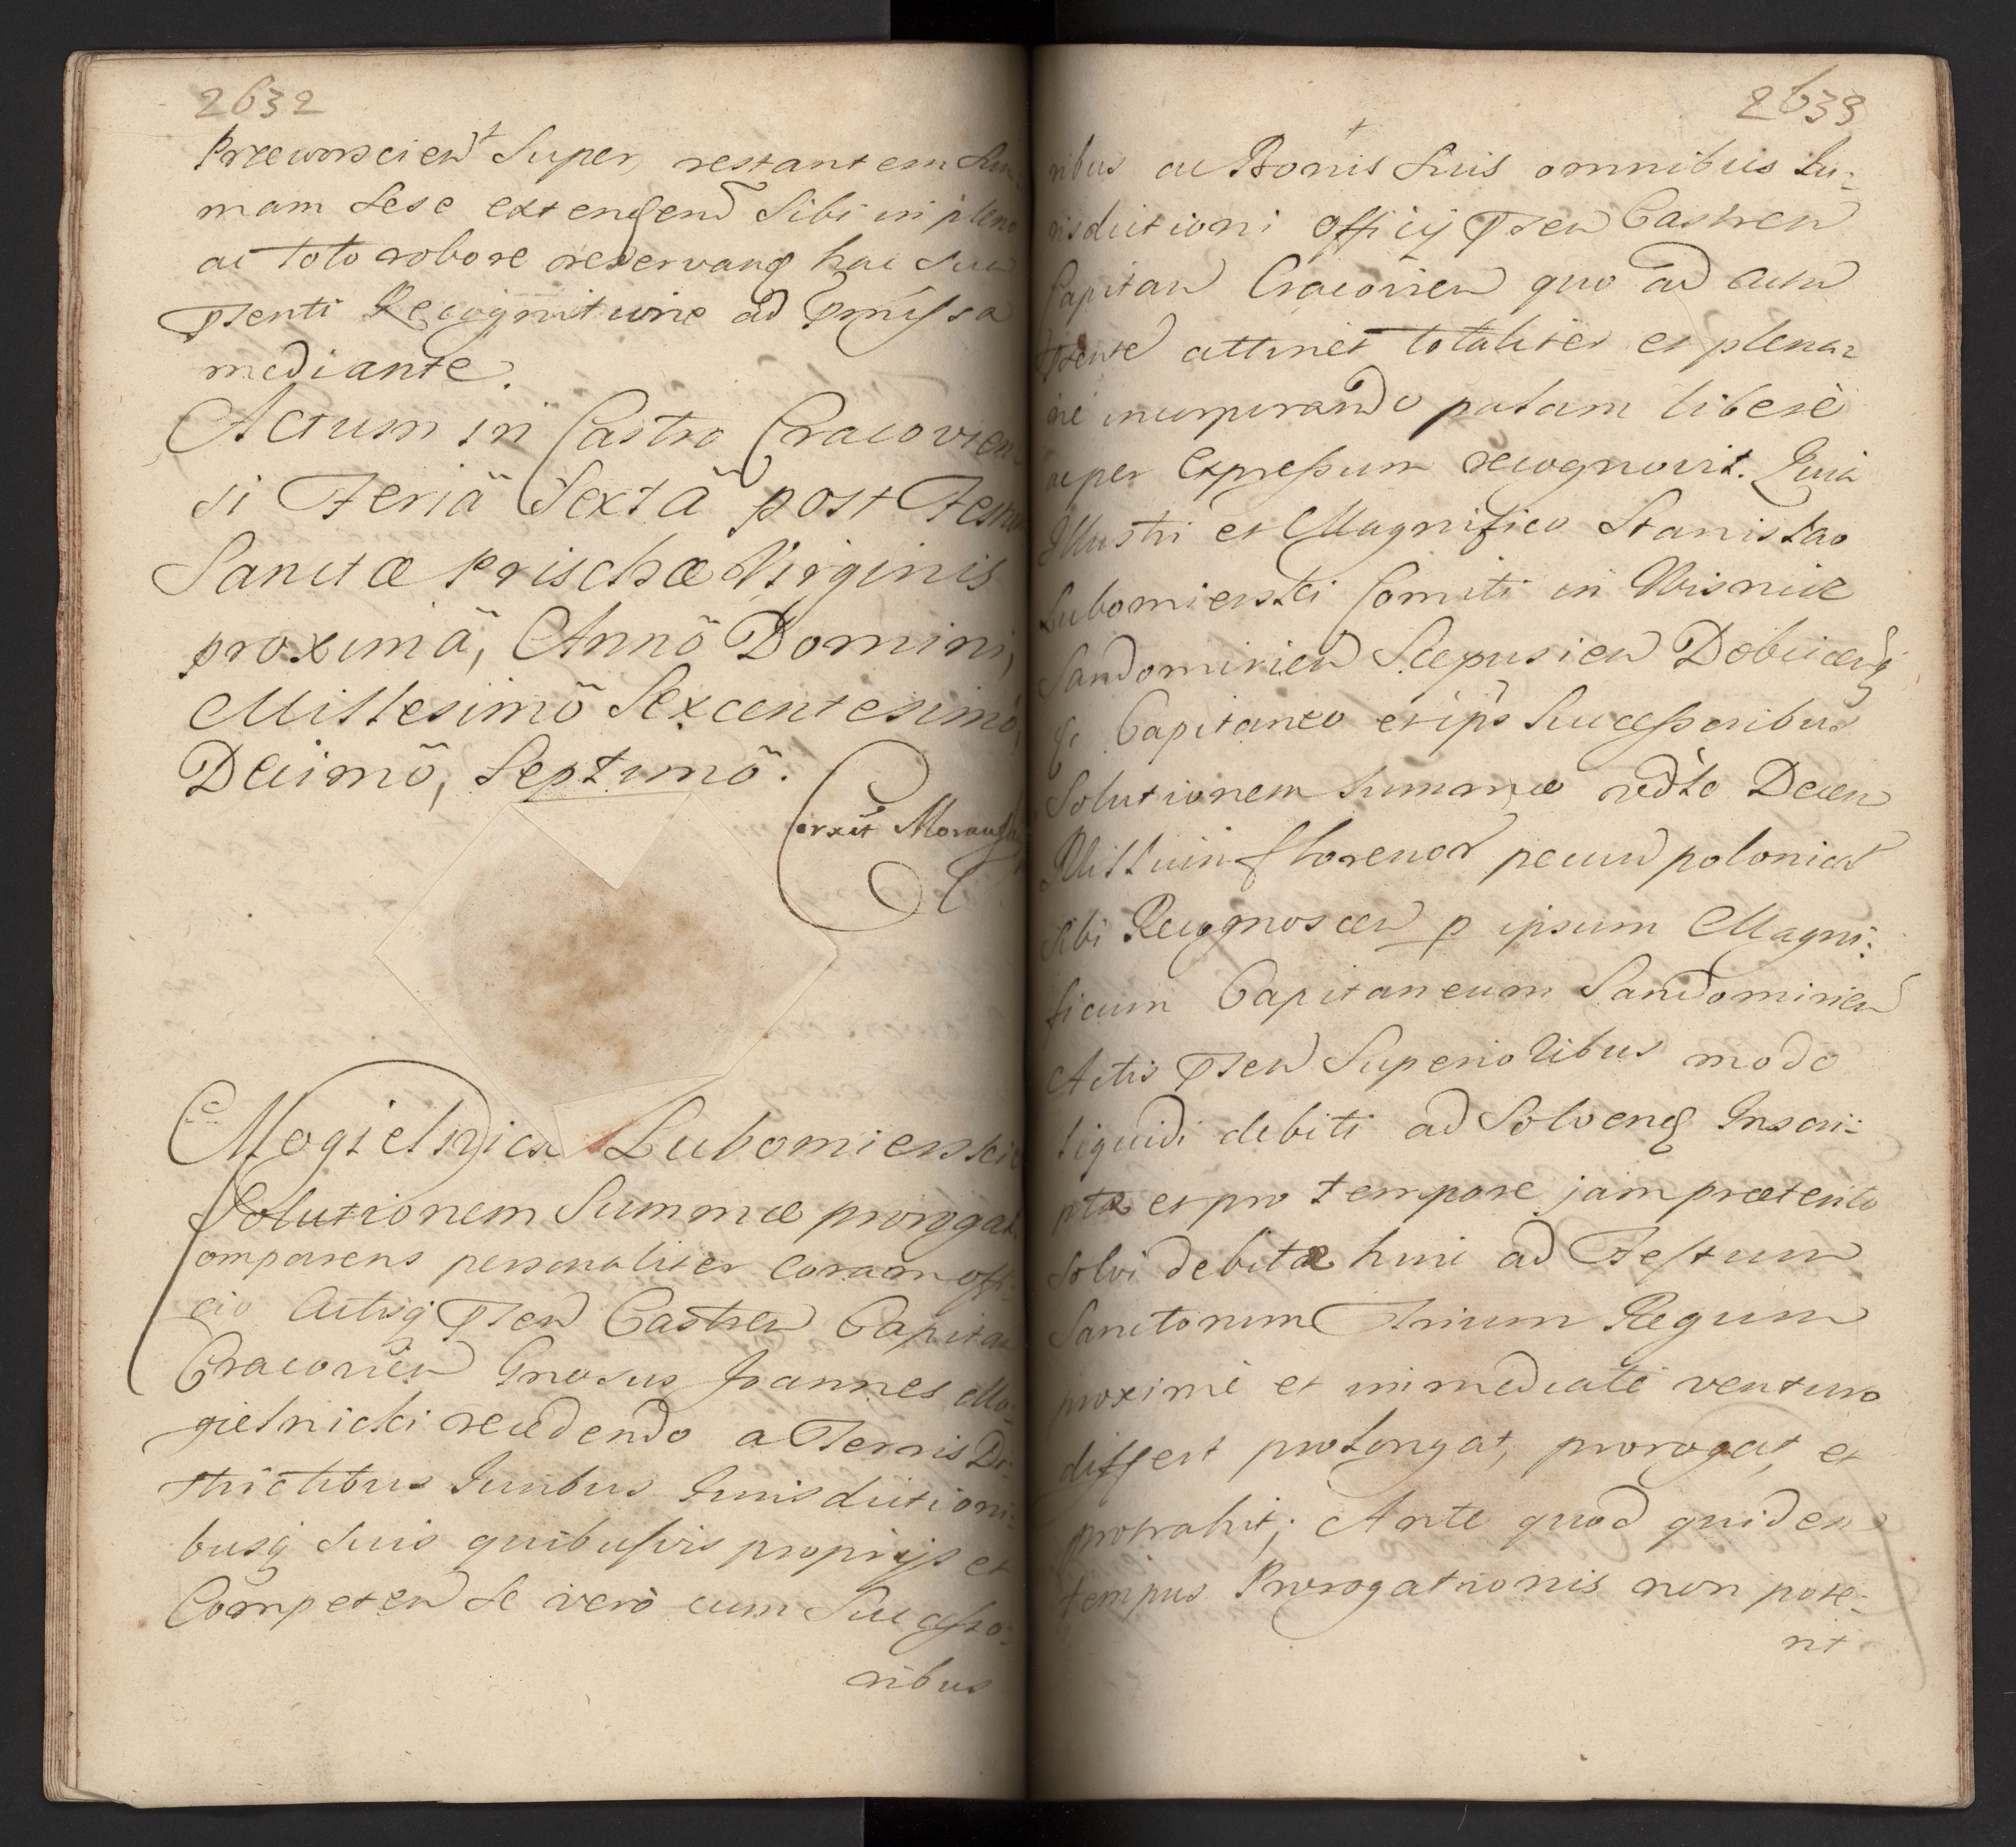 2632
Przeworscien Super, restantem Sum=
mam sese extendend Sibi in pleno
ac toto robore reservand hac Sua
pnti Recognitione ad pmissa
mediante.
Actum in Castro Cracovien=
si Feria Sexta post Festum
Sanctæ Prischæ Virginis
proximâ, Annô Domini,
Millesimô Sexcentesimô,
Decimô, Septimô.
Corxit
Mogielnicki Lubomierski
Solutionem Summæ prorogat
omparens personaliter coram offi=
cio Actisq pnen Castren Capitan
Cracovien Gnosus Joannes Mo=
gielnicki recedendo a Terris Di=
strictibus Juribus Jurisdictioni=
busq suis quibusvis proprijs et
Competen Se verò cum Successo=
ribus
2633
ribus ac Bonis Suis omnibus Iu=
risdictioni officij pnen Castren
Capitan Cracovien quo ad actum
pnte attinet totaliter et plena=
rie incorporando palam liberè
ac per Expressum recognovit. Quia
Illustri et Magnifico Stanislao
Lubomierski Comiti in Wisnicz
Sandomirien Scepusien Dobcicen
&c Capitaneo et ips Successoribus
Solutionem Summæ Decen
Millium florenor pecun polonical
sibi Recognoscen p ipsum Magni=
ficum Capitaneum Sandomirien
Actis pnen Superioribus modo
liquidi debiti ad Solvend Inscri=
ptæ et pro tempore jam præterito
solvi debitæ huic ad Festum
Sanctorum Trium Regum
proximè et immediatè venturo
differt prolongat, prorogat, et
protrahit; Ante quod quidem
tempus Prorogationis non pote=
rit